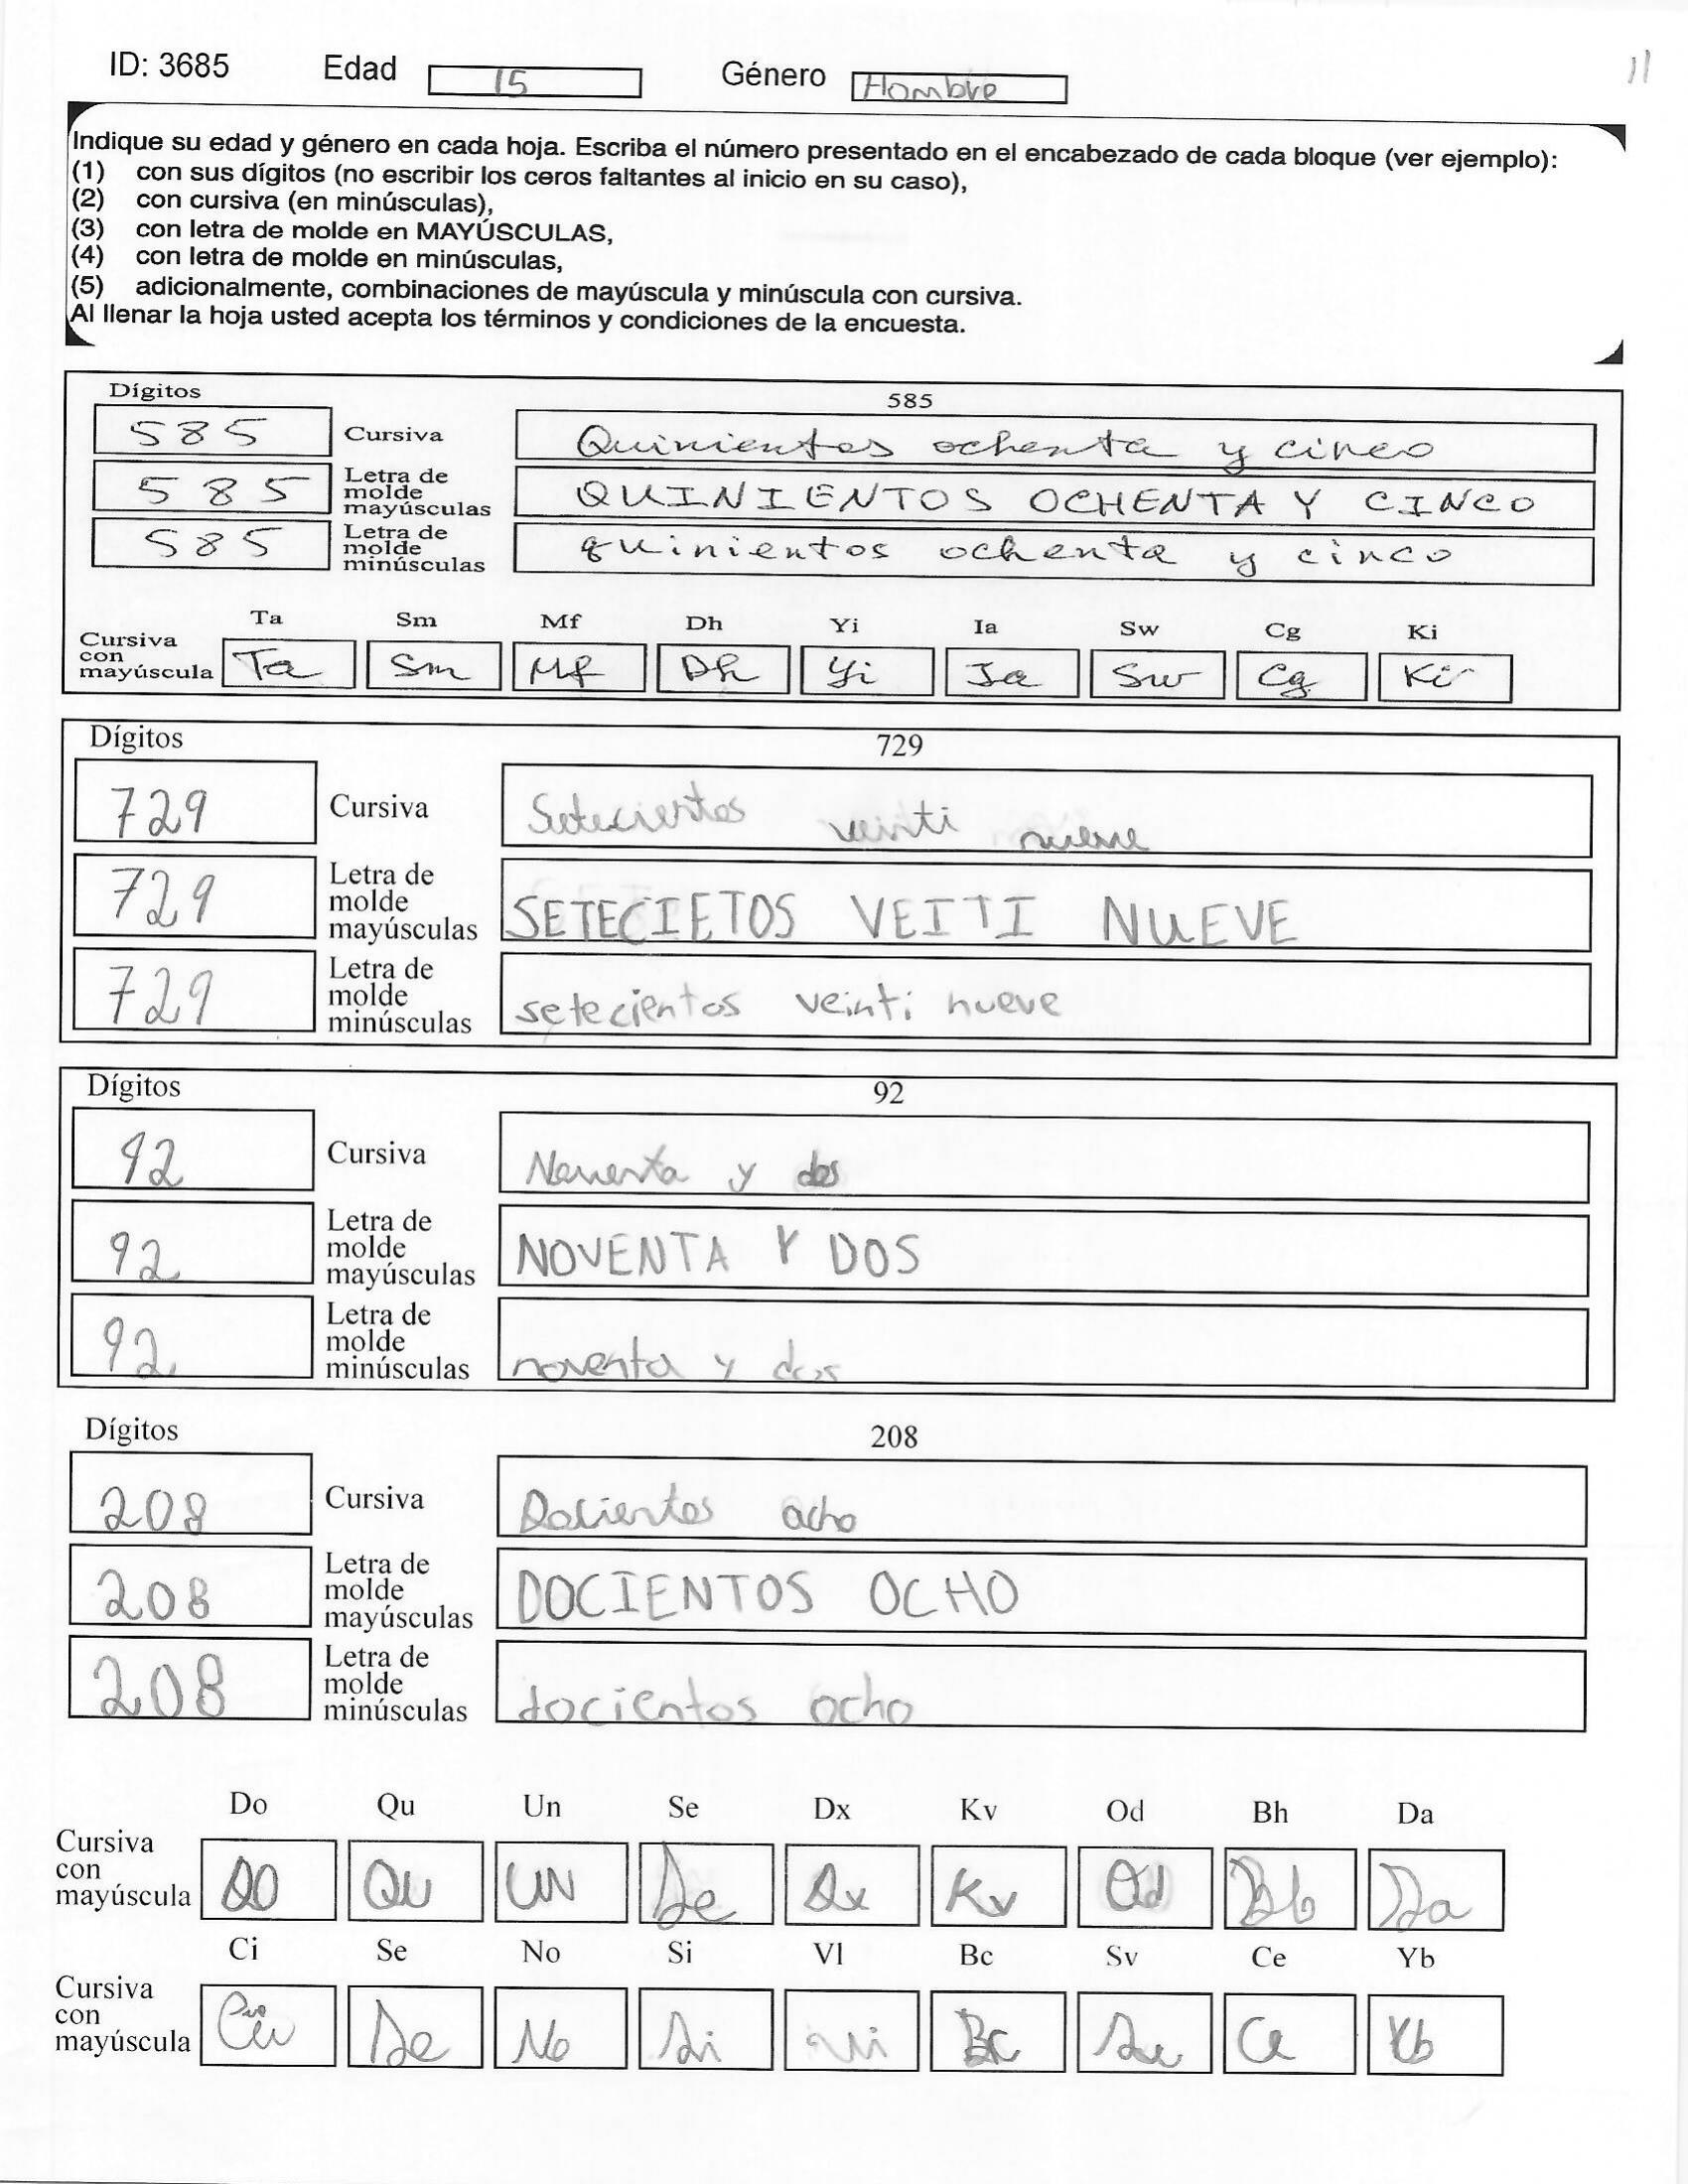 ID: 3685 Edad 15 Género Hombre 11
Indique su edad y género en cada hoja. Escriba el número presentado en el encabezado de cada bloque (ver ejemplo):
(1) con sus dígitos (no escribir los ceros faltantes al inicio en su caso),
(2) con cursiva (en minúsculas),
(3) con letra de molde en MAYÚSCULAS,
(4) con letra de molde en minúsculas,
(5) adicionalmente, combinaciones de mayúscula y minúscula con cursiva.
Al llenar la hoja usted acepta los términos y condiciones de la encuesta.
Dígitos 585
585 Cursiva Quinientos ochenta y cinco
585 Letra de molde mayúsculas QUINIENTOS OCHENTA Y CINCO
585 Letra de molde minúsculas quinientos ochenta y cinco
Ta Sm Mf Dh Yi Ia Sw Cg Ki
Cursiva con mayúscula Ta Sm Mf Dh Yi Ia Sw Cg Ki
Dígitos 729
729 Cursiva Setecientos veinti nueve
729 Letra de molde mayúsculas SETECIETOS VEITI NUEVE
729 Letra de molde minúsculas setecientos veinti nueve
Dígitos 92
92 Cursiva Noventa y dos
92 Letra de molde mayúsculas NOVENTA Y DOS
92 Letra de molde minúsculas noventa y dos
Dígitos 208
208 Cursiva Docientos ocho
208 Letra de molde mayúsculas DOCIENTOS OCHO
208 Letra de molde minúsculas docientos ocho
Do Qu Un Se Dx Kv Od Bh Da
Cursiva con mayúscula DO Qu UN Se Dx Kv Od Bb Da
Ci Se No Si Vl Bc Sv Ce Yb
Cursiva con mayúscula Se No Si Vi Bc Sv Ce Yb